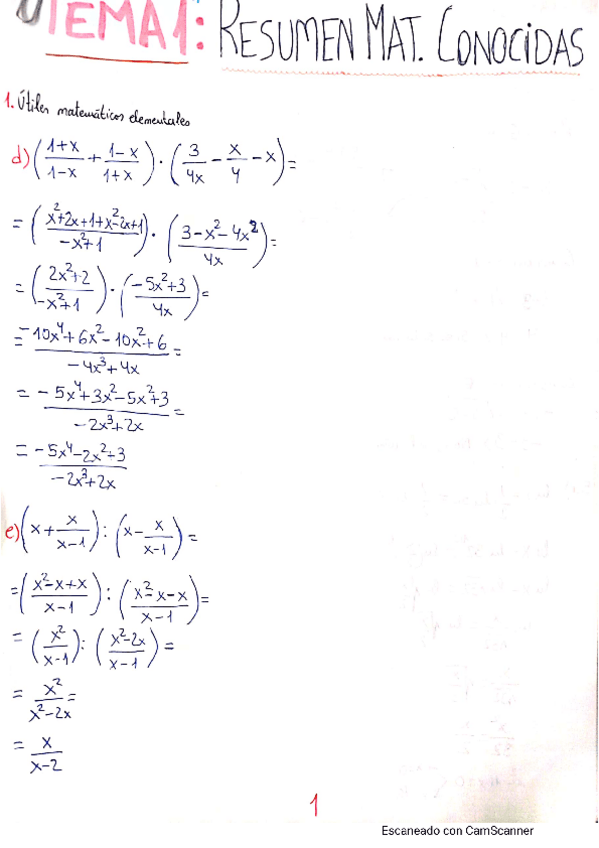 TEMA 1: RESUMEN MAT. CONOCIDAS
1. Útiles matemáticos elementales
d) ((1+x)/(1-x) + (1-x)/(1+x)) · (3/(4x) - x/4 - x) =
= ((x²+2x+1+x²-2x+1)/(-x²+1)) · ((3-x²-4x²)/(4x)) =
= ((2x²+2)/(-x²+1)) · ((-5x²+3)/(4x)) =
= (-10x⁴+6x²-10x²+6)/(-4x³+4x) =
= (-5x⁴+3x²-5x²+3)/(-2x³+2x) =
= (-5x⁴-2x²+3)/(-2x³+2x)
e) (x + x/(x-1)) : (x - x/(x-1)) =
= ((x²-x+x)/(x-1)) : ((x²-x-x)/(x-1)) =
= (x²/(x-1)) : ((x²-2x)/(x-1)) =
= x²/(x²-2x) =
= x/(x-2)
1
Escaneado con CamScanner